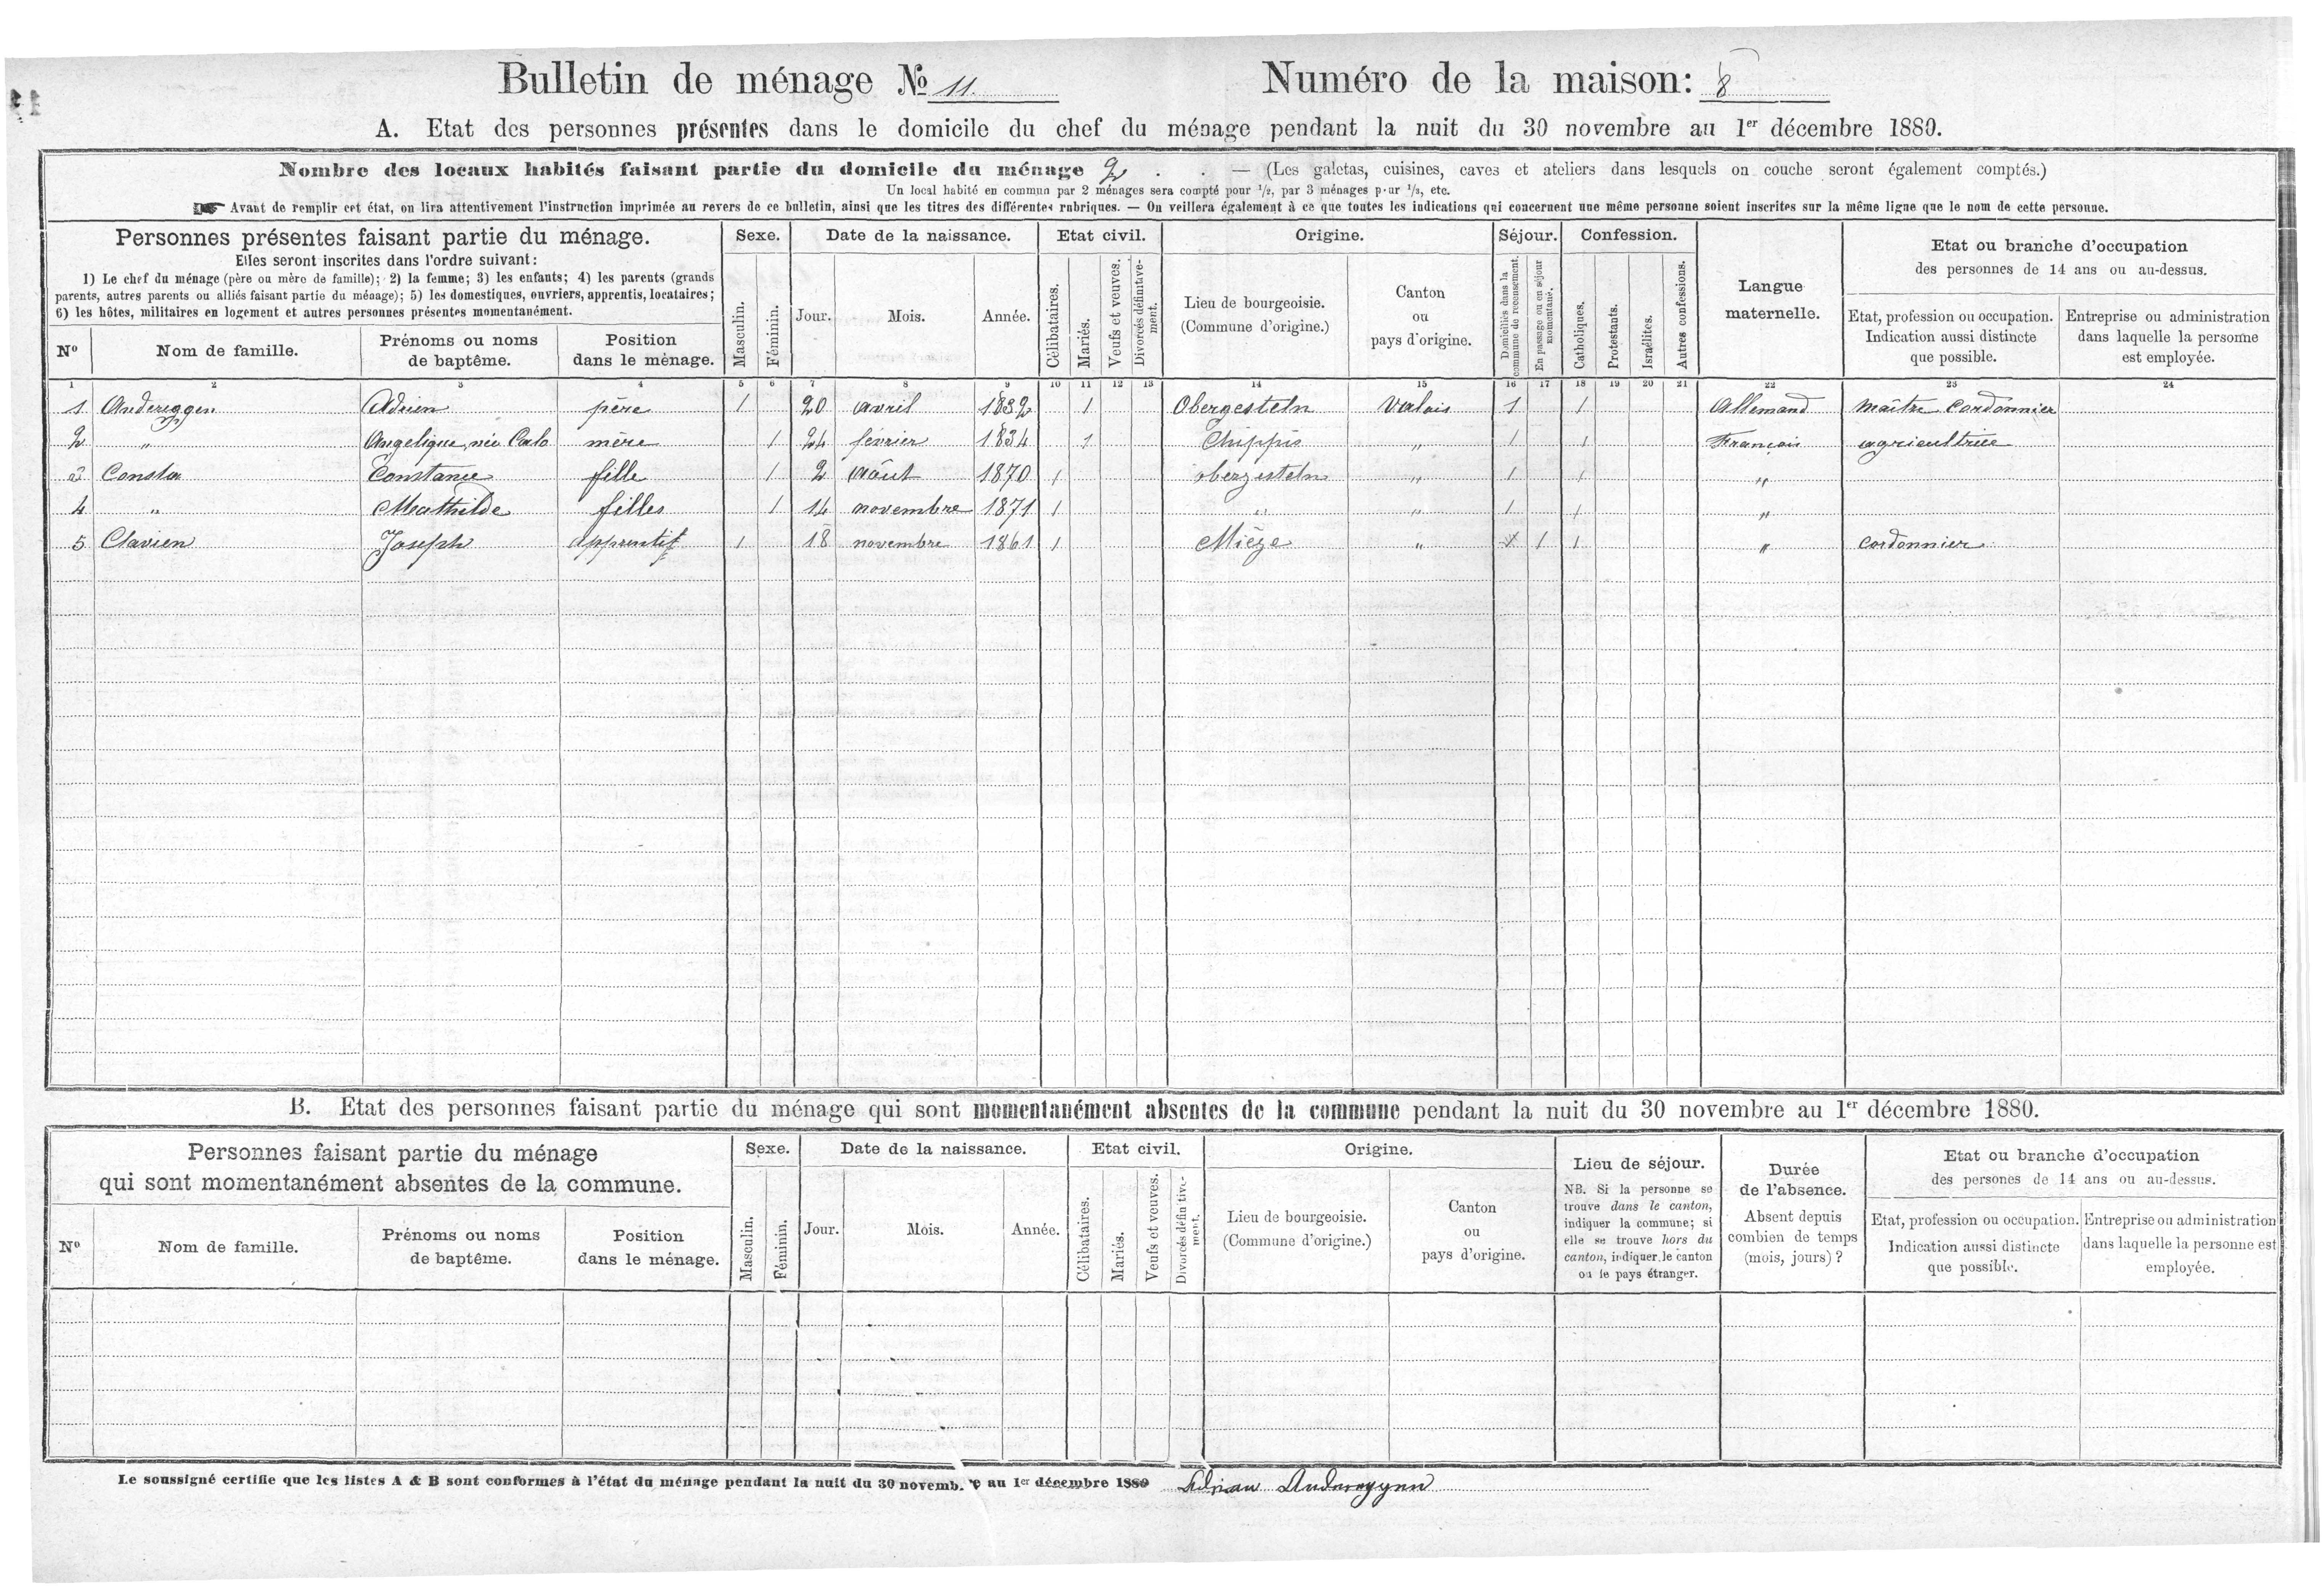 Bulletin de ménage No 11 Numéro de la maison: 8
A. Etat des personnes présentes dans le domicile du chef du ménage pendant la nuit du 30 novembre au 1er décembre 1880.
Nombre des locaux habités faisant partie du domicile du ménage 2 . . — (Les galetas, cuisines, caves et ateliers dans lesquels on couche seront également comptés.)
Un local habité en commun par 2 ménages sera compté pour 1/2, par 3 ménages pour 1/3, etc.
☛ Avant de remplir cet état, on lira attentivement l'instruction imprimée au revers de ce bulletin, ainsi que les titres des différentes rubriques. — On veillera également à ce que toutes les indications qui concernent une même personne soient inscrites sur la même ligne que le nom de cette personne.
Personnes présentes faisant partie du ménage.
Elles seront inscrites dans l'ordre suivant:
1) Le chef du ménage (père ou mère de famille); 2) la femme; 3) les enfants; 4) les parents (grands
parents, autres parents ou alliés faisant partie du ménage); 5) les domestiques, ouvriers, apprentis, locataires;
6) les hôtes, militaires en logement et autres personnes présentes momentanément.
No Nom de famille. Prénoms ou noms de baptême. Position dans le ménage.
Sexe. Masculin. Féminin.
Date de la naissance. Jour. Mois. Année.
Etat civil. Célibataires. Mariés. Veufs et veuves. Divorcés définitivement.
Origine. Lieu de bourgeoisie. (Commune d'origine.) Canton ou pays d'origine.
Séjour. Domiciliés dans la commune de recensement. En passage ou en séjour momentané.
Confession. Catholiques. Protestants. Israélites. Autres confessions.
Langue maternelle.
Etat ou branche d'occupation
des personnes de 14 ans ou au-dessus.
Etat, profession ou occupation. Indication aussi distincte que possible.
Entreprise ou administration dans laquelle la personne est employée.
1 2 3 4 5 6 7 8 9 10 11 12 13 14 15 16 17 18 19 20 21 22 23 24
1 Andereggen Adrien père 1 20 avril 1832 1 Obergesteln Valais 1 1 Allemand maître Cordonnier
2 " Angelique, née Calo mère 1 24 février 1834 1 Chippis " 1 1 Français agricultrice
3 Consta Constance fille 1 2 août 1870 1 obergesteln " 1 1 "
4 " Mathilde filles 1 14 novembre 1871 1 " " 1 1 "
5 Clavien Joseph apprentif 1 18 novembre 1861 1 Miège " 1 1 " cordonnier
B. Etat des personnes faisant partie du ménage qui sont momentanément absentes de la commune pendant la nuit du 30 novembre au 1er décembre 1880.
Personnes faisant partie du ménage
qui sont momentanément absentes de la commune.
No Nom de famille. Prénoms ou noms de baptême. Position dans le ménage.
Sexe. Masculin. Féminin.
Date de la naissance. Jour. Mois. Année.
Etat civil. Célibataires. Mariés. Veufs et veuves. Divorcés définitivement.
Origine. Lieu de bourgeoisie. (Commune d'origine.) Canton ou pays d'origine.
Lieu de séjour.
NB. Si la personne se
trouve dans le canton,
indiquer la commune; si
elle se trouve hors du
canton, indiquer le canton
ou le pays étranger.
Durée
de l'absence.
Absent depuis
combien de temps
(mois, jours) ?
Etat ou branche d'occupation
des persones de 14 ans ou au-dessus.
Etat, profession ou occupation. Indication aussi distincte que possible.
Entreprise ou administration dans laquelle la personne est employée.
Le soussigné certifie que les listes A & B sont conformes à l'état du ménage pendant la nuit du 30 novembre au 1er décembre 1880 Adrian Andereggen